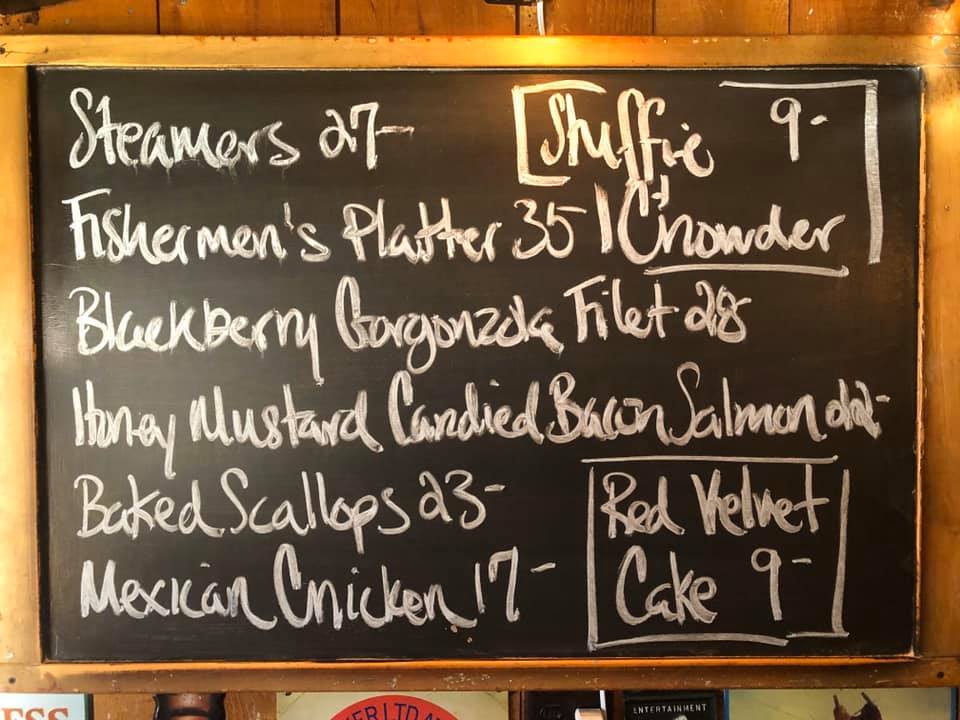 Steamers 27-
Stuffie 9-
& Chowder
Fishermen's Platter 35
Blackberry Gorgonzola Filet 28-
Honey Mustard Candied Bacon Salmon 22-
Baked Scallops 23-
Mexican Chicken 17-
Red Velvet
Cake 9-
ESS
ER LTD
ENTERTAINMENT